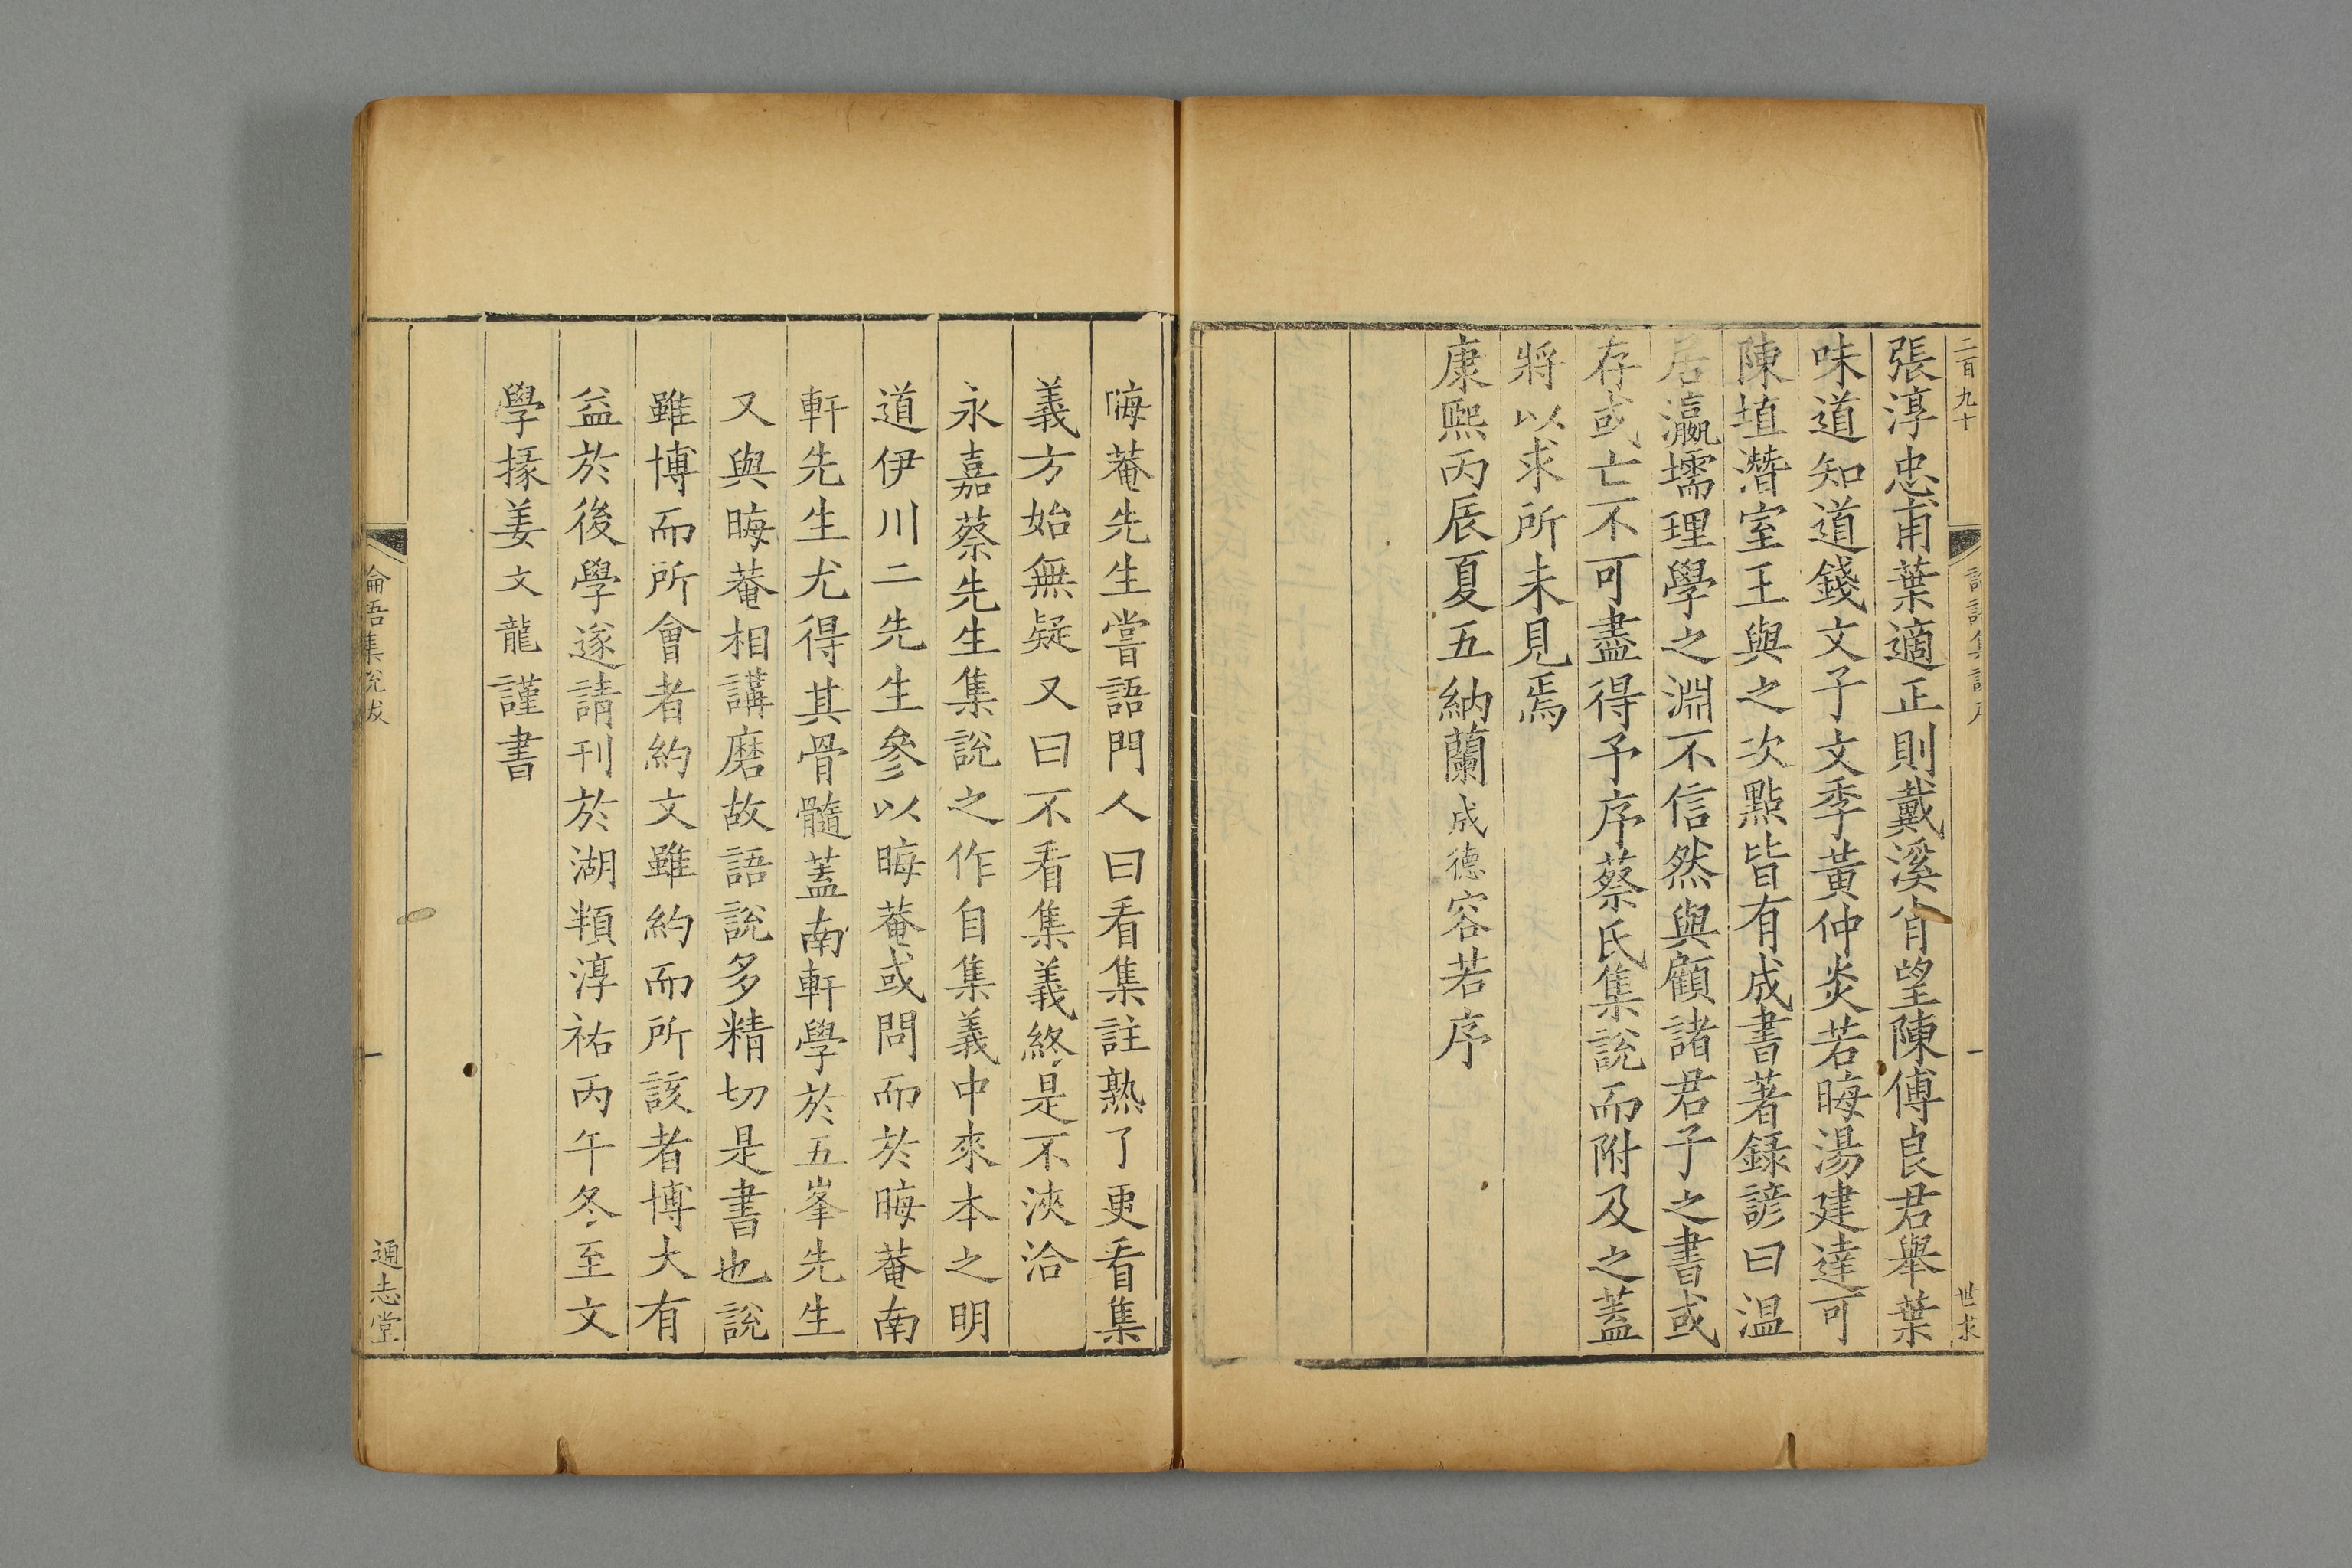 二百九十
世求
張淳忠甫葉適正則戴溪肖望陳傅良君舉葉
味道知道錢文子文季黃仲炎若晦湯建達可
陳埴潛室王與之次點皆有成書著録諺曰温
居瀛壖理學之淵不信然與顧諸君子之書或
存或亡不可盡得予序蔡氏集說而附及之蓋
將以求所未見焉
康熙丙辰夏五納蘭成德容若序
晦菴先生嘗語門人曰看集註熟了更看集
義方始無疑又曰不看集義終是不浹洽
永嘉蔡先生集說之作自集義中來本之明
道伊川二先生參以晦菴或問而於晦菴南
軒先生尤得其骨髓蓋南軒學於五峯先生
又與晦菴相講磨故語說多精切是書也說
雖博而所會者約文雖約而所該者博大有
益於後學遂請刊於湖頖淳祐丙午冬至文
學掾姜文龍謹書
論語集說跋
一
通志堂